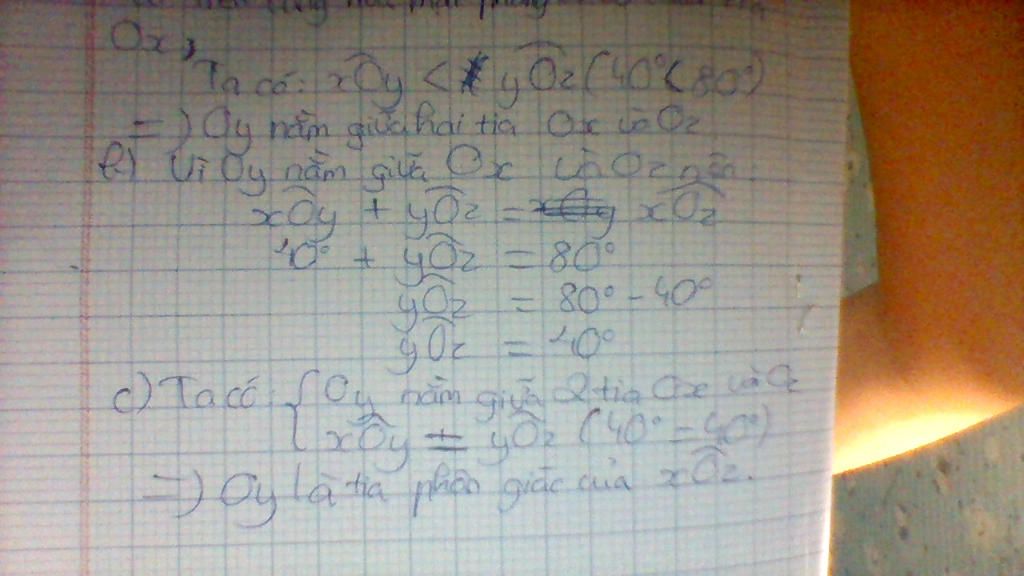 Ox,
Ta có: xOy < yOz (40° < 80°)
=) Oy nằm giữa hai tia Ox và Oz
b) Vì Oy nằm giữa Ox và Oz nên
xOy + yOz = xOz
40° + yOz = 80°
yOz = 80° - 40°
yOz = 40°
c) Ta có: { Oy nằm giữa 2 tia Ox và Oz
xOy = yOz (40° = 40°)
=) Oy là tia phân giác của xOz.